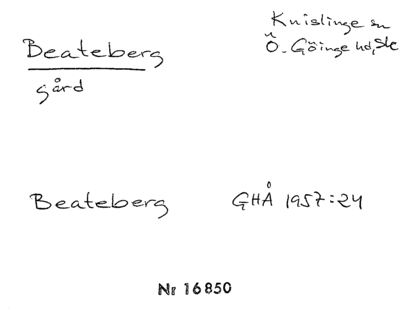 Beateberg
gård
Knislinge sn
Ö. Göinge hd, Sk
Beateberg GHÅ 1957:24
Nr 16850